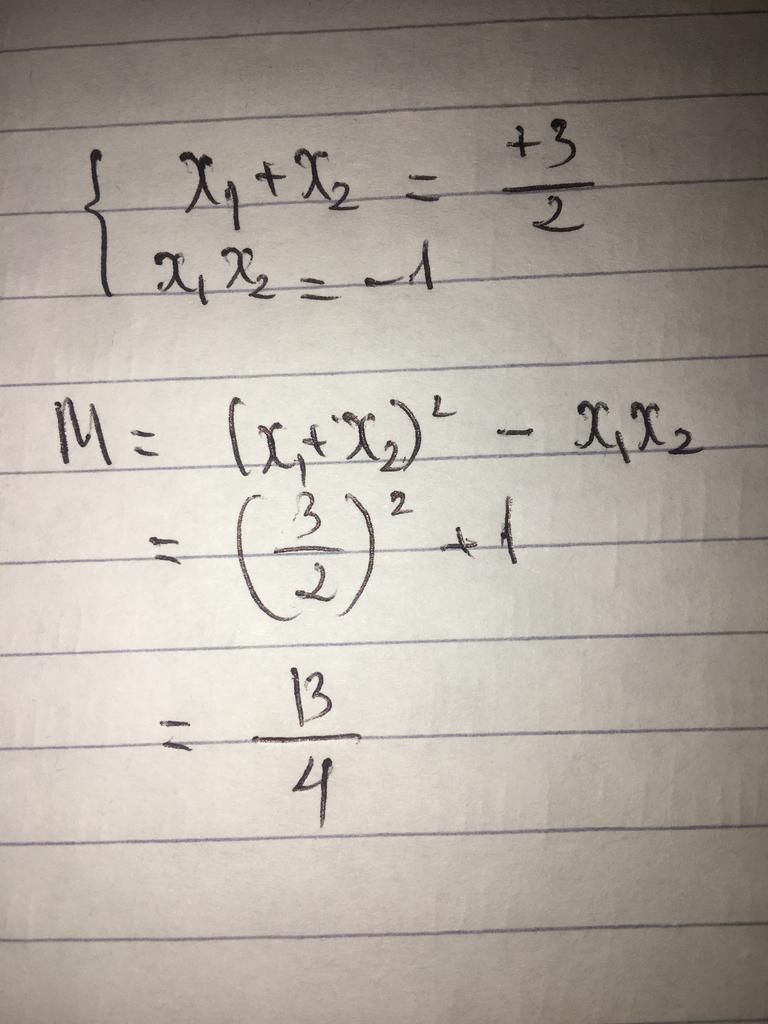 { x₁ + x₂ = +3/2
x₁ x₂ = -1
M = (x₁ + x₂)² - x₁x₂
= (3/2)² + 1
= 13/4